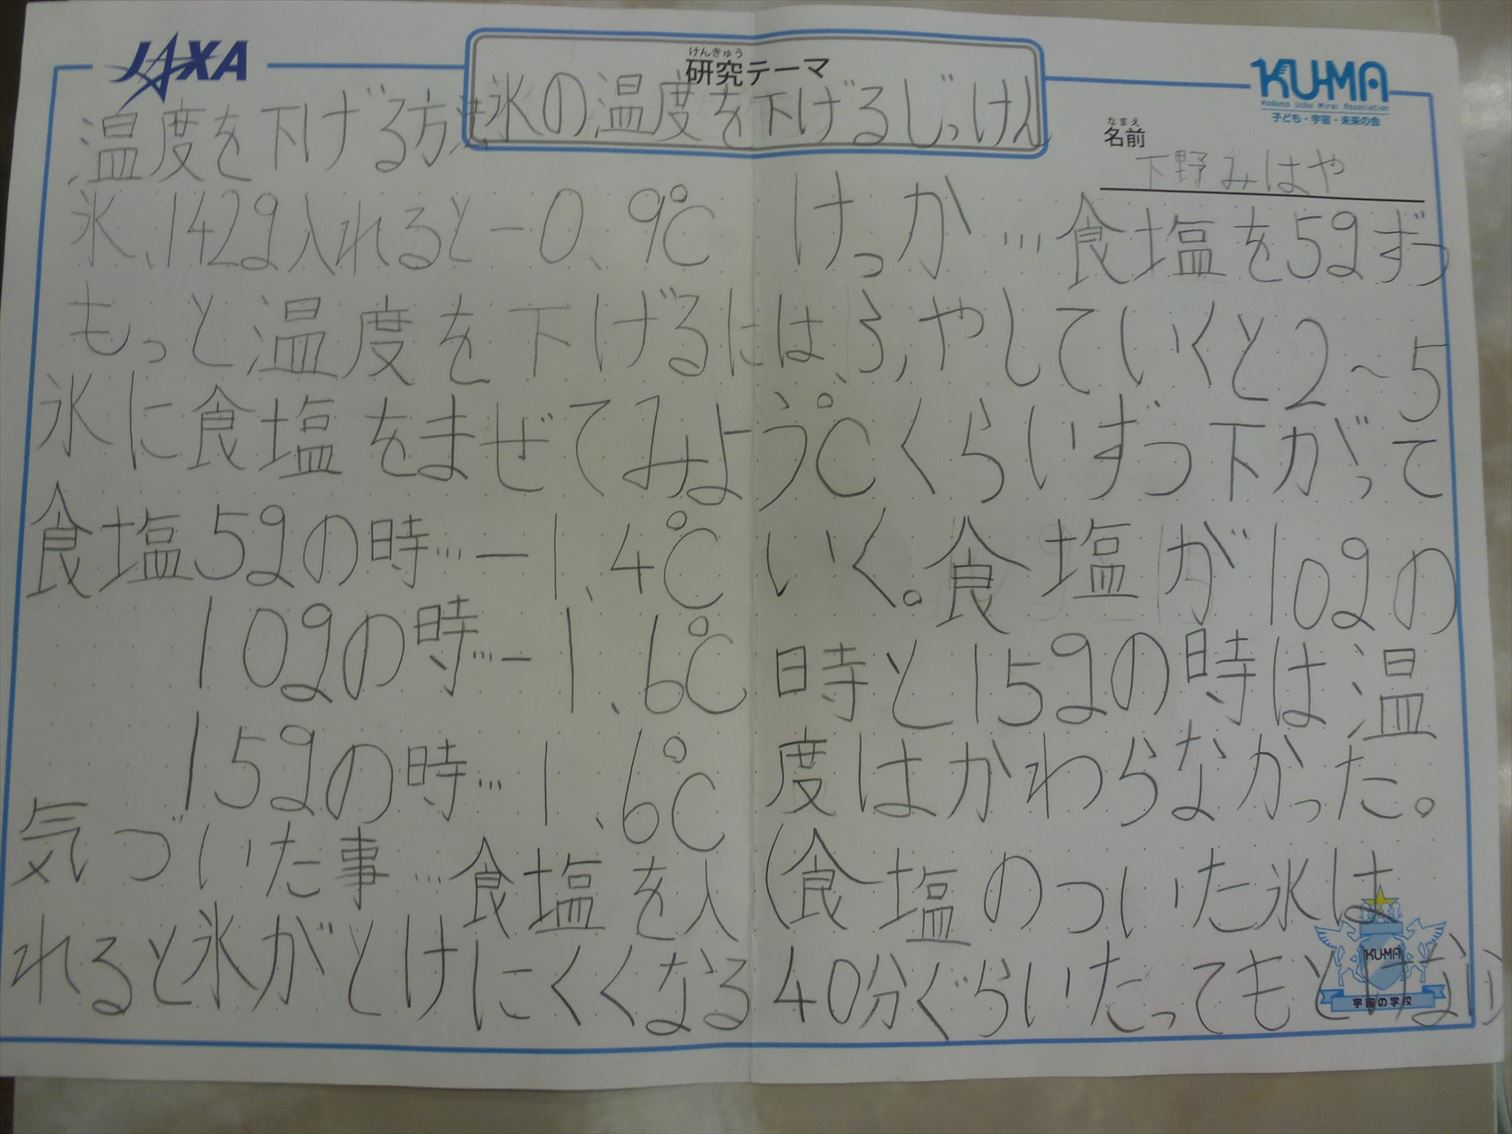 JAXA
けんきゅう
研究テーマ
氷の温度を下げるじっけん
KU-MA
Kodomo Uchu Mirai Association
子ども・宇宙・未来の会
なまえ
名前
下野みはや
温度を下げる方法
氷、142g入れると-0、9℃
もっと温度を下げるには、
氷に食塩をまぜてみよう
食塩5gの時…-1、4℃
10gの時…-1、6℃
15gの時…-1、6℃
気づいた事…食塩を入
れると氷がとけにくくなる
けっか…食塩を5gずつ
ふやしていくと2~5
℃くらいずつ下がって
いく。食塩が10gの
時と15gの時は温
度はかわらなかった。
(食塩のついた氷は
40分ぐらいたってもとけない)
KU-MA
宇宙の学校